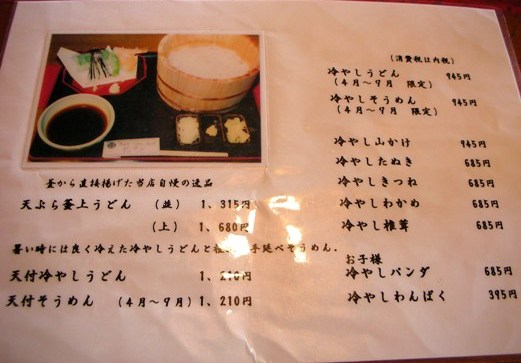 釜から直接揚げた当店自慢の逸品
天ぷら釜上うどん (並) 1,315円
(上) 1,680円
暑い時には良く冷えた冷やしうどんと 手延べそうめん.
天付冷やしうどん 1,210円
天付そうめん (4月~9月) 1,210円
(消費税は内税)
冷やしうどん 945円
(4月~9月 限定)
冷やしそうめん 945円
(4月~9月 限定)
冷やし山かけ 945円
冷やしたぬき 685円
冷やしきつね 685円
冷やしわかめ 685円
冷やし椎茸 685円
お子様
冷やしパンダ 685円
冷やしわんぱく 395円